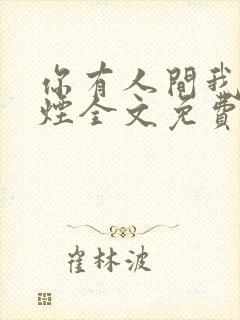 你有人間我
煙全文免費
崔林波